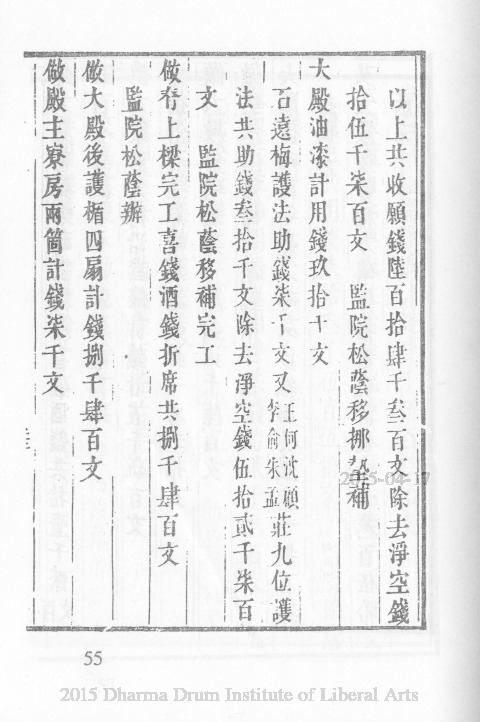 以上共收願錢陸百拾肆千叁百文除去淨空錢
拾伍千柒百文　監院松蔭移挪墊補
大殿油漆計用錢玖拾千文
石遠梅護法助錢柒千文又王何沈顧李俞朱孟莊九位護
法共助錢叁拾千文除去淨空錢伍拾貳千柒百
文　監院松蔭移補完工
做脊上樑完工喜錢酒錢折席共捌千肆百文
監院松蔭辦
做大殿後護楯四扇計錢捌千肆百文
做殿主寮房兩箇計錢柒千文
2015-04-17
55
2015 Dharma Drum Institute of Liberal Arts